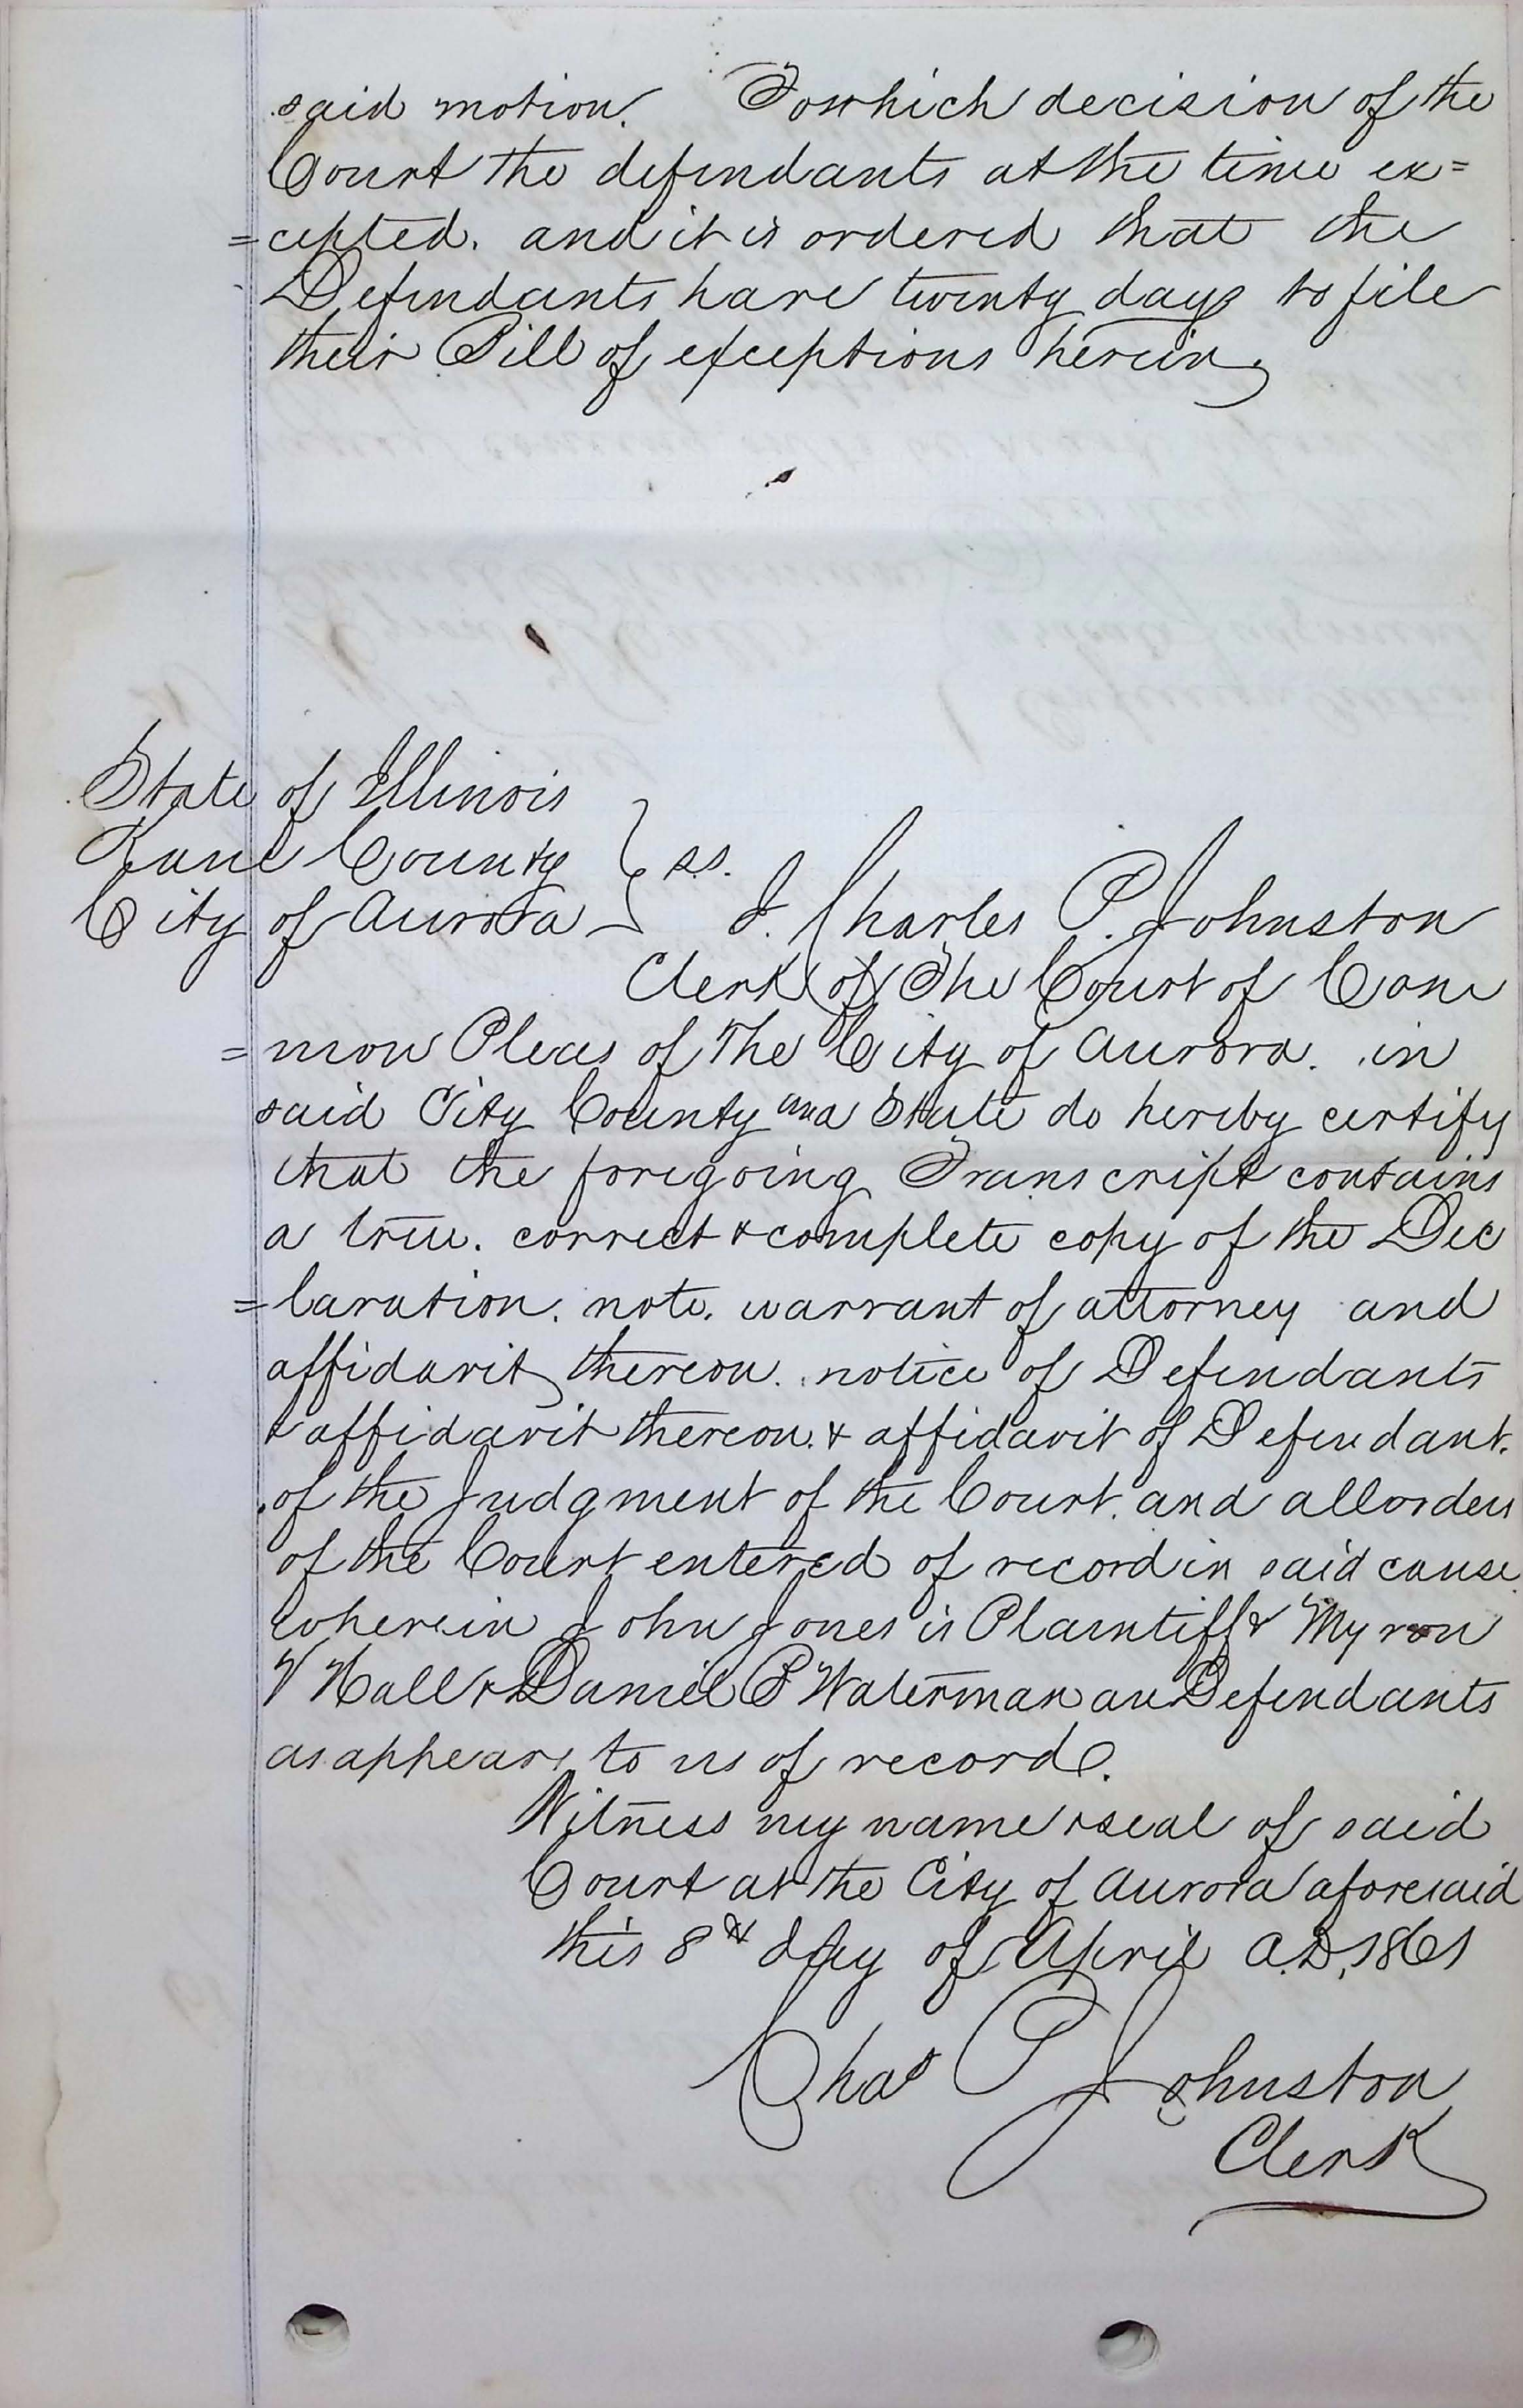 said motion. To which decision of the
Court the defendants at the time ex=
=cepted. and it is ordered that the
Defendants have twenty days to file
their Bill of exceptions herein,
State of Illinois
Kane County } ss.
City of Aurora
I. Charles P. Johnston
Clerk of The Court of Com
=mon Pleas of The City of Aurora. in
said City County and State do hereby certify
that the foregoing Transcript contains
a true. correct & complete copy of the Dec
=laration. note. warrant of attorney and
affidavit thereon. notice of Defendants
& affidavit thereon. & affidavit of Defendant.
of the Judgment of the Court. and all orders
of the Court entered of record in said cause
wherein John Jones is Plaintiff & Myron
V Hall & Daniel P Waterman are Defendants
as appears to us of record.
Witness my name & seal of said
Court at the City of Aurora aforesaid
this 8th day of April A.D. 1861
Chas P Johnston
Clerk